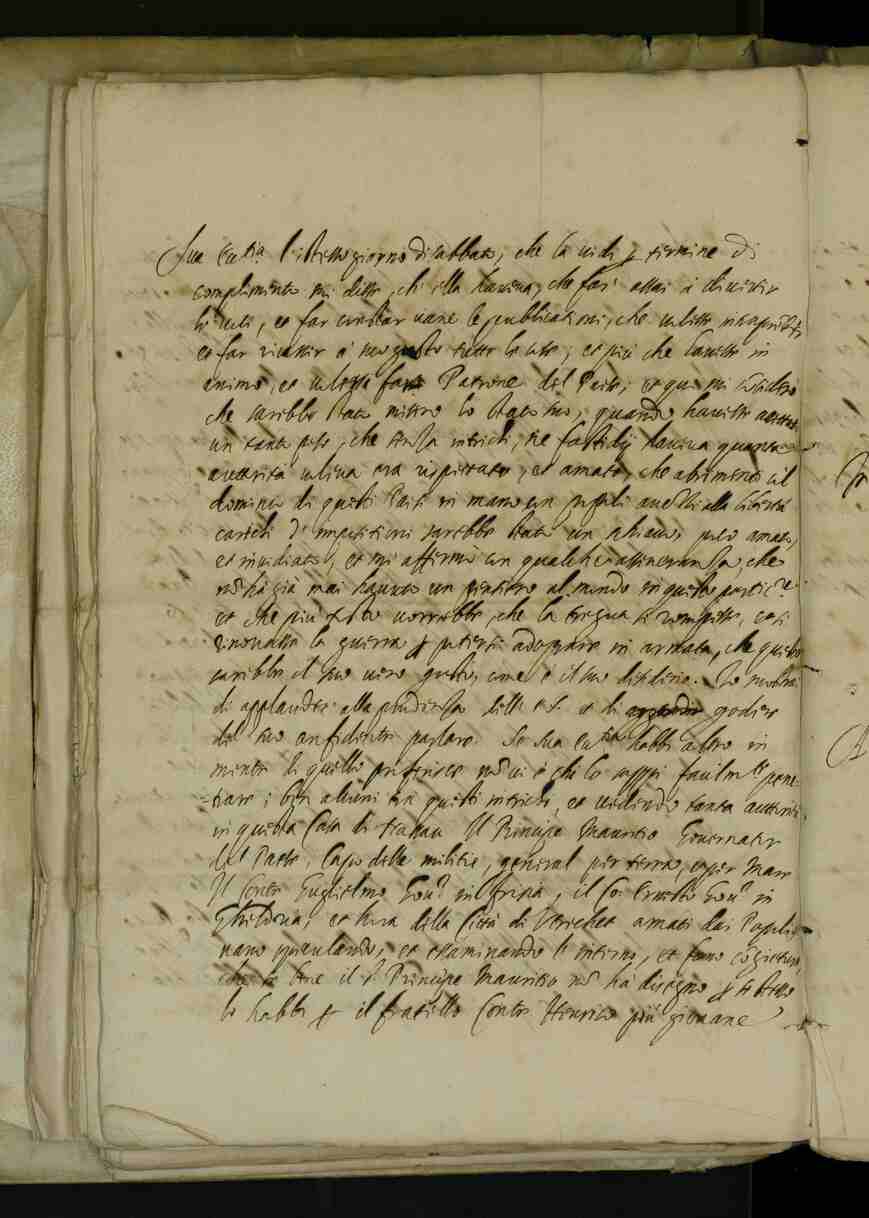 Sua Ecc.tia l'istesso giorno di sabbato, che la vidi p termine di
complimento mi disse, ch'ella haveva, che far' assai à divertir
le voci, et far restar vane le publicationi, che volesse
et far riuscir à suo gusto tutto lo stato; et più che havesse in
animo, et volesse farsi Patrone del Paese; et qui mi
che sarebbe stato misero lo stato suo, quando havesse
un tanto peso, che senza intrichi, ne fastidij haveva quanta
auttorità voleva era rispettato, et amato, che altrimente col
dominio di questi Paesi in mano con popoli avezzi alla libertà
carichi d'impositioni sarebbe stato un schiavo, poco amato,
et invidiato, et mi affirmò con qualche asseveranza, che
nõ hà già mai havuto un pensiero al mondo in questo partic.re
et che più tosto vorrebbe, che la tregua si rompesse, et si
rinovasse la guerra p potersi adoprare in armata, che questo
sarebbe il suo vero gusto, come è il suo desiderio. Io mostrai
di applauder alla prudenza dell' E. S. et di godere
del suo confidente parlare. Se sua Ecc.tia habbi altro in
mente di quello proferisce nõ vi è chi lo sappi facilm.te pene-
-trare; ben alcuni tra questi intrichi, et vedendo tanta auttorità
in questa Casa di Nassau Il Principe Mauritio Governator
del Paese, Capo delle militie, general per terra, et per Mare
Il Conte Guglielmo Gov.r in Frisia, il Co: Ernesto Gov.r in
Gheldria; et hora della Città di Utrichet amati dai Popoli
vano specolando, et essaminando l'interno, et fanno cogietture,
che se bene il s.r Principe Mauritio nõ ha disegno p se stesso
lo habbi p il fratello Conte Henrico più giovane